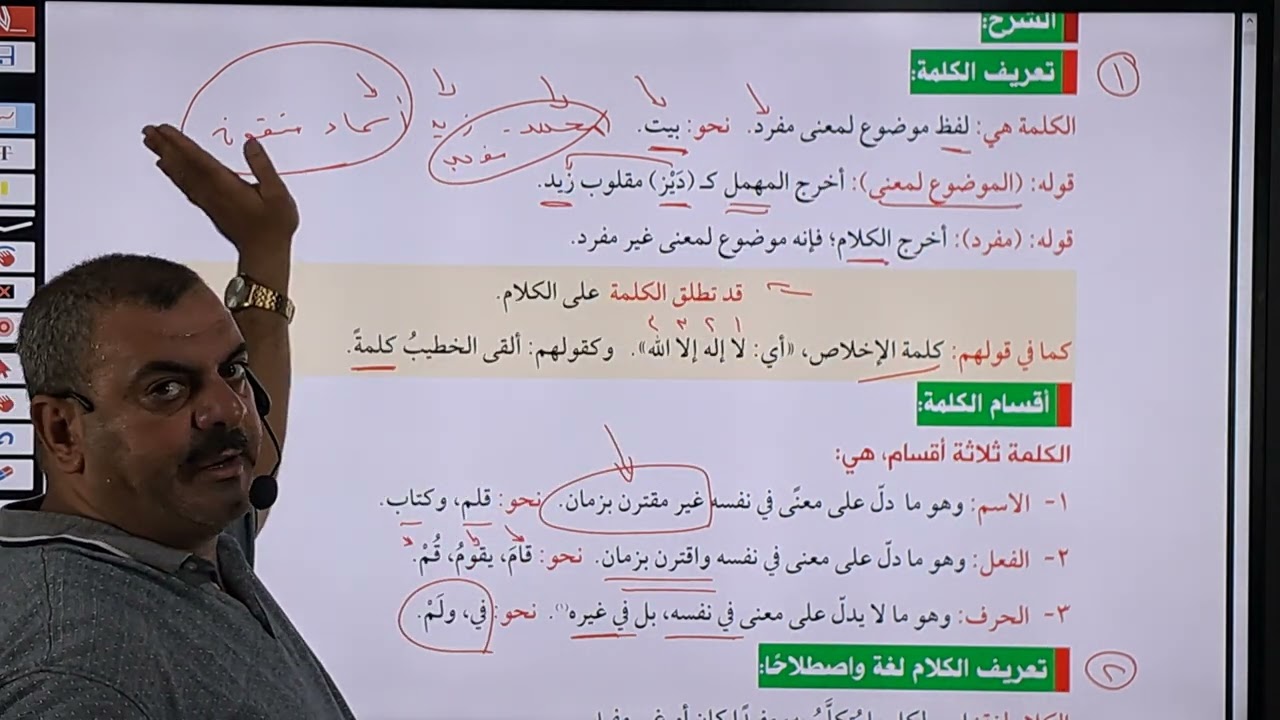 الشرح:
١ تعريف الكلمة:
الكلمة هي: لفظ موضوع لمعنى مفرد. نحو: بيت.
قوله: (الموضوع لمعنى): أخرج المهمل كـ (دَيْز) مقلوب زَيد.
قوله: (مفرد): أخرج الكلام؛ فإنه موضوع لمعنى غير مفرد.
قد تطلق الكلمة على الكلام.
كما في قولهم: كلمة الإخلاص، «أي: لا إله إلا الله». وكقولهم: ألقى الخطيبُ كلمةً.
أقسام الكلمة:
الكلمة ثلاثة أقسام، هي:
١- الاسم: وهو ما دلّ على معنًى في نفسه غير مقترن بزمان. نحو: قلم، وكتاب.
٢- الفعل: وهو ما دلّ على معنى في نفسه واقترن بزمان. نحو: قامَ، يقومُ، قُمْ.
٣- الحرف: وهو ما لا يدلّ على معنى في نفسه، بل في غيره(١). نحو: في، ولَمْ.
٢ تعريف الكلام لغة واصطلاحًا: